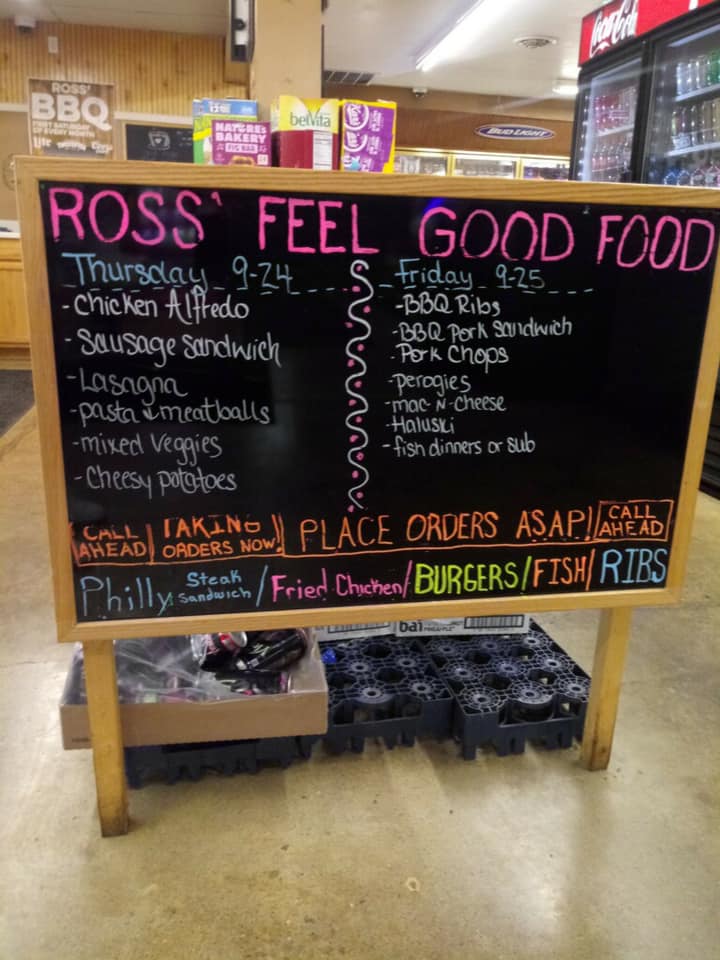 ROSS'
BBQ
FIRST SATURDAY
OF EVERY MONTH
Lite
NATURE'S
BAKERY
FIG BAR
belVita
BUD LIGHT
Coca-Cola
ROSS' FEEL GOOD FOOD
Thursday 9-24
- Chicken Alfredo
- Sausage Sandwich
- Lasagna
- pasta & meatballs
- mixed Veggies
- Cheesy potatoes
Friday 9-25
- BBQ Ribs
- BBQ Pork Sandwich
- Pork Chops
- perogies
- mac-N-Cheese
- Haluski
- fish dinners or sub
CALL AHEAD
TAKING ORDERS NOW!
PLACE ORDERS ASAP!
CALL AHEAD
Philly Steak Sandwich / Fried Chicken / BURGERS / FISH / RIBS
bai